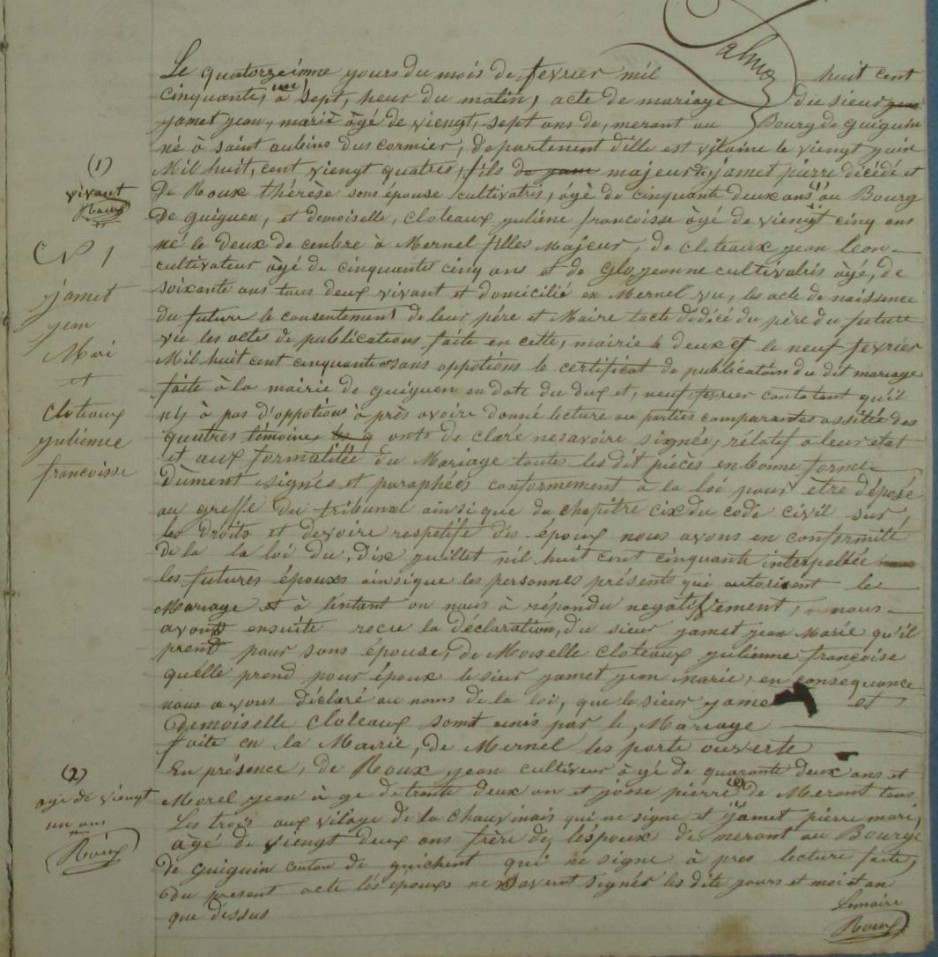 Le quatorzeimme yours du mois de fevrier mil huit cent
cinquante, un à sept, heur du matin, acte de mariage du sieur
yamet jean, marie âgé de viengt, sept ans de, merant au Bourg de guiguin
né à saint aubino dus cormier, departement dille est vilaine le viengt yuin
Mil huit, cent viengt quatres, fils de majeur de yamet pierre décédé et
De Roux thérèse sons épouse cultivatrís, âgé de cinquante deux ans (1) au Bourg
De guiguen, et demoiselle, cloteaux yuliéne francoisse âgé de viengt cinq ans
né le deux de cenbre à Mernel filles Majeur, de cloteaux jean leon
cultivateur âgé de cinquantes cinq ans et de Glo, yeanne cultivatris âgé, de
soixante ans tous deux vivant et domicilié en Mernel vu, les acte de naissence
du future le consentement de leur pére et Maire lacte dédécé du père du future
vu les actes de publications faite en cette, mairie le deux et le neuf fevrier
Mil huit cent cinquante sans oppotions le certificat de publication du dit mariage
faite à la mairie de guiguen en date du dux et, neuf fevrier contatent qu'il
niy à pas d'oppotions à près avoire donné lecture au parties comparantes assitée des
quatres témoins onts de claré nesavoire signée, rélatif a leur état
et aux formalitée du Mariage toutes les dit pièces en bonne forme
Dûment signés et paraphées conformement à la loi pour etre déposé
au greffe du tribunal ainsi que du chapitre cix du code civil sur
les droits et devoire respetifs des époux nous avons en conformité
De la la loi du, dix yuillet mil huit cent cinquante interpellée
les futures épouxes ainsique les personnes présents qui autorisent le
Mariage et à lintant on nous à répondu negátifvement, nous
avons ensuite recu la déclaration, du sieur yamet jean Marie qu'il
prend pour sons épouse, de Moiselle cloteaux yulienne françoise
quélle prend pour époux le sieur yamet jean marie, en consequance
nous avons déclaré au noms de la loi, que le sieur yame et
Demoiselle cloteaux somt unis par le, Mariage
faite en la Mairie, de Mernel les porte ouverte
En présence, de Roux jean cultiveur à gé de quarante deux ans et
Morel jean à ge de trente deux an et josse pierre (2) De Merant tous
Les trois aux vilage de la chauvinais qui ne signe et yamet pierre marie,
age de viengt deux ans frère de, lespoux de merant au Bourge
De Guiguin canton de guichent qui ne signe à pres lecture faite,
du present acte lés epouxs ne savent signér les dite yours et moi et an
que dessus
Lemaire
Roux
(1)
vivant
Roux
N° 1
yamet
jean
Mari
et
cloteaux
yulienne
francoisse
(2)
age de viengt
un ans
Roux